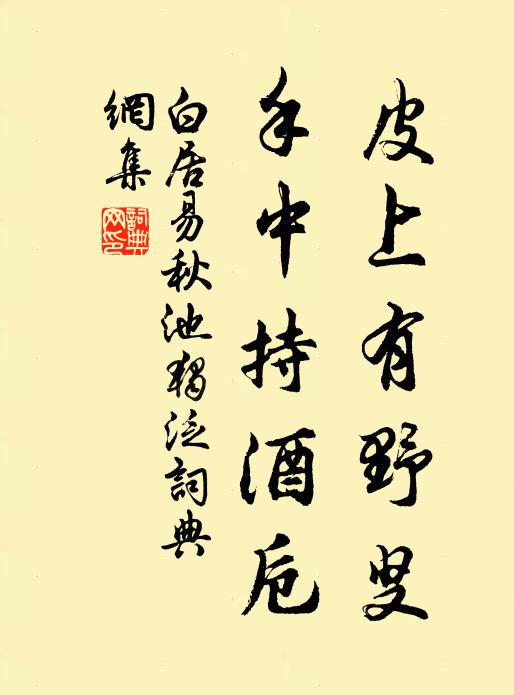 皮上有野叟
手中持酒卮
白居易秋池獨泛詞典
網集
詞典網印